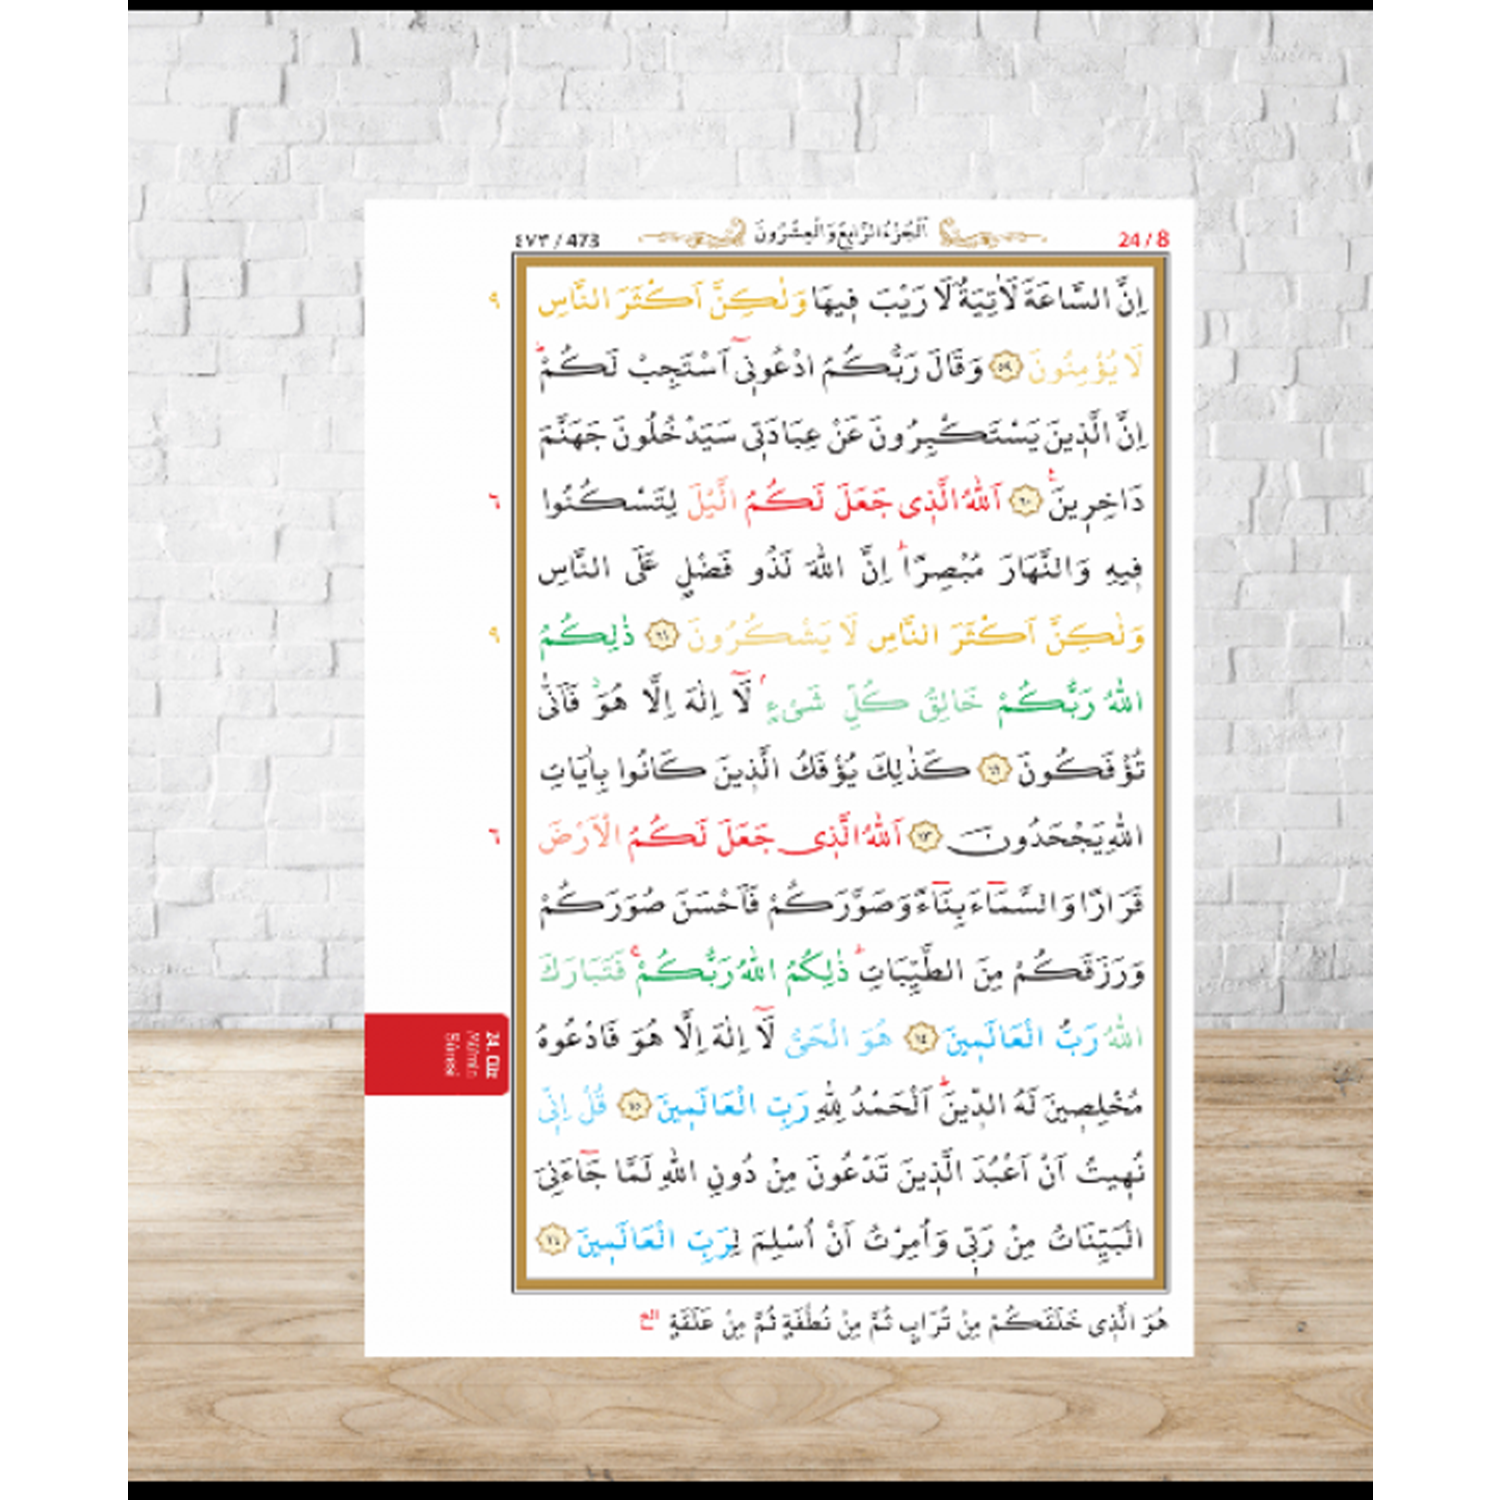 ٤٧٣ / 473
اَلْجُزْءُ الرَّابِعُ وَالْعِشْرُونَ
24 / 8
اِنَّ السَّاعَةَ لَاٰتِيَةٌ لَا رَيْبَ ف۪يهَا وَلٰكِنَّ اَكْثَرَ النَّاسِ ٩
لَا يُؤْمِنُونَ ٥٩ وَقَالَ رَبُّكُمُ ادْعُون۪ٓي اَسْتَجِبْ لَكُمْۜ
اِنَّ الَّذ۪ينَ يَسْتَكْبِرُونَ عَنْ عِبَادَت۪ي سَيَدْخُلُونَ جَهَنَّمَ
دَاخِر۪ينَ۟ ٦٠ اَللّٰهُ الَّذ۪ي جَعَلَ لَكُمُ الَّيْلَ لِتَسْكُنُوا ٦
ف۪يهِ وَالنَّهَارَ مُبْصِرًاۜ اِنَّ اللّٰهَ لَذُو فَضْلٍ عَلَى النَّاسِ
وَلٰكِنَّ اَكْثَرَ النَّاسِ لَا يَشْكُرُونَ ٦١ ذٰلِكُمُ ٩
اللّٰهُ رَبُّكُمْ خَالِقُ كُلِّ شَيْءٍۢ لَٓا اِلٰهَ اِلَّا هُوَۘ فَاَنّٰى
تُؤْفَكُونَ ٦٢ كَذٰلِكَ يُؤْفَكُ الَّذ۪ينَ كَانُوا بِاٰيَاتِ
اللّٰهِ يَجْحَدُونَ ٦٣ اَللّٰهُ الَّذ۪ي جَعَلَ لَكُمُ الْاَرْضَ ٦
قَرَارًا وَالسَّمَٓاءَ بِنَٓاءً وَصَوَّرَكُمْ فَاَحْسَنَ صُوَرَكُمْ
وَرَزَقَكُمْ مِنَ الطَّيِّبَاتِۜ ذٰلِكُمُ اللّٰهُ رَبُّكُمْۚ فَتَبَارَكَ
اللّٰهُ رَبُّ الْعَالَم۪ينَ ٦٤ هُوَ الْحَيُّ لَٓا اِلٰهَ اِلَّا هُوَ فَادْعُوهُ
مُخْلِص۪ينَ لَهُ الدّ۪ينَۜ اَلْحَمْدُ لِلّٰهِ رَبِّ الْعَالَم۪ينَ ٦٥ قُلْ اِنّ۪ي
نُه۪يتُ اَنْ اَعْبُدَ الَّذ۪ينَ تَدْعُونَ مِنْ دُونِ اللّٰهِ لَمَّا جَٓاءَنِيَ
الْبَيِّنَاتُ مِنْ رَبّ۪ي وَاُمِرْتُ اَنْ اُسْلِمَ لِرَبِّ الْعَالَم۪ينَ ٦٦
هُوَ الَّذ۪ي خَلَقَكُمْ مِنْ تُرَابٍ ثُمَّ مِنْ نُطْفَةٍ ثُمَّ مِنْ عَلَقَةٍ الخ
24. Cüz
Mü'min
Sûresi